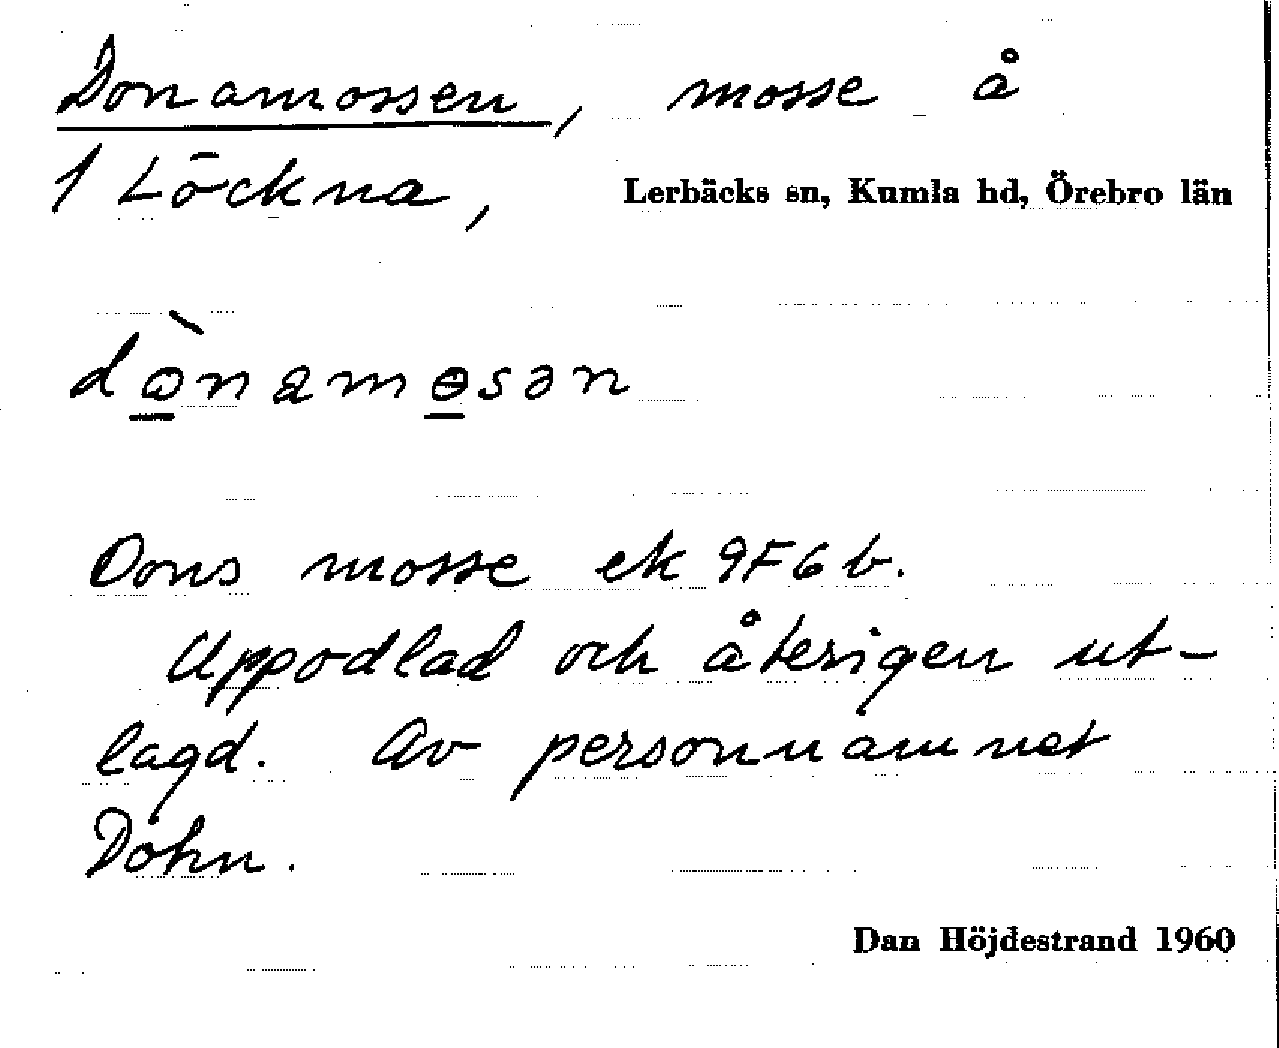 Donamossen, mosse å
1 Löckna, Lerbäcks sn, Kumla hd, Örebro län
dɷ̀namɵsən
Dons mosse ek 9F6b.
Uppodlad och återigen ut-
lagd. Av personnamnet
Dohn.
Dan Höjdestrand 1960